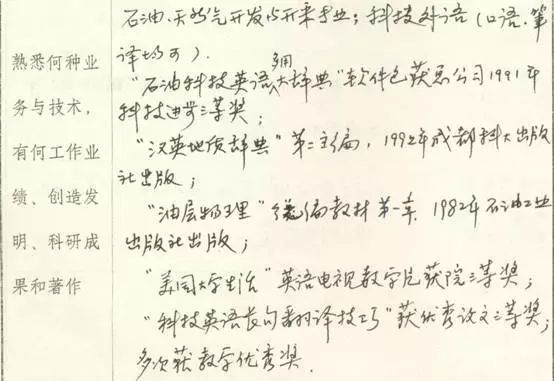 熟悉何种业
务与技术，
有何工作业
绩、创造发
明、科研成
果和著作
石油、天然气开发与开采专业；科技外语（口语、笔
译均可）.
“石油科技英语多用大辞典”软件包获总公司1991年
科技进步三等奖；
“汉英地质辞典”第二主编，1992年成都科大出版
社出版；
“油层物理”统编教材第一章，1982年石油工业
出版社出版；
“美国大学生活”英语电视教学片获院三等奖；
“科技英语长句翻译技巧”获优秀论文三等奖；
多次获教学优秀奖.